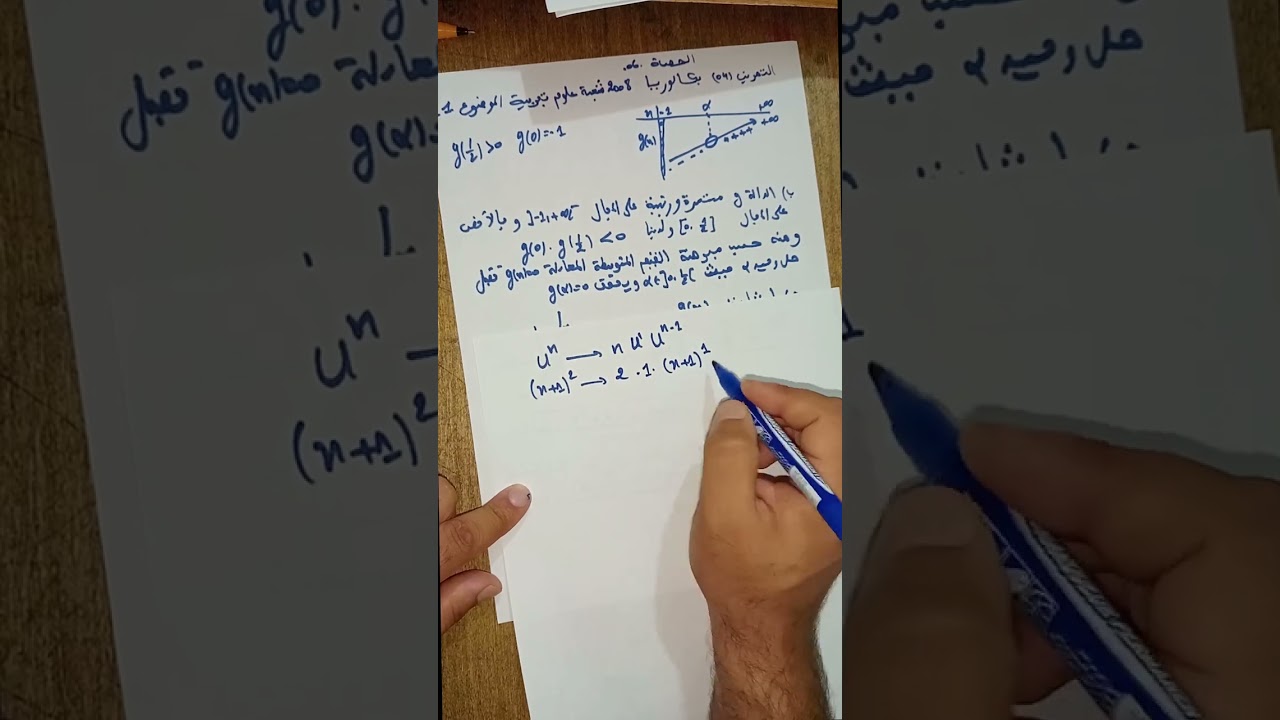 الحصة 06.
التمرين (04) بكالوريا 2008 شعبة علوم تجريبية الموضوع 1.
x -1 α +∞
g(x) - - - + + + + +∞
g(1/2)>0 g(0)=-1
ب) الدالة g مستمرة ورتيبة على المجال ]-1,+∞[ و بالأخص
على المجال [0,1/2] ولدينا g(0).g(1/2)<0
ومنه حسب مبرهنة القيم المتوسطة المعادلة g(x)=0 تقبل
حل وحيد α حيث α∈]0,1/2[ ويحقق g(α)=0
uⁿ → n u' uⁿ⁻¹
(x+1)² → 2 . 1 . (x+1)¹